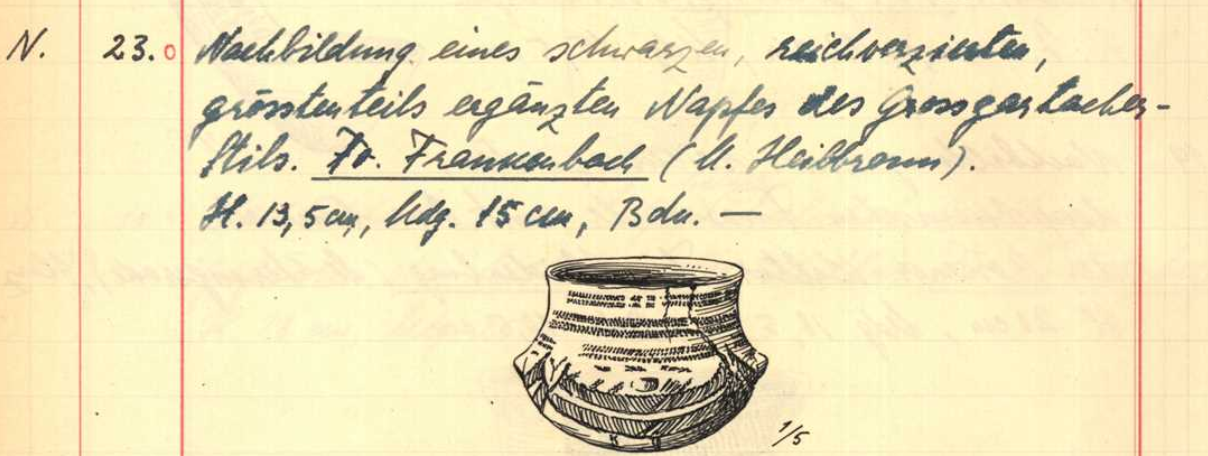 N. 23. Nachbildung eines schwarzen, reichverzierten,
grösstenteils ergänzten Napfes des Grossgartacher-
Stils. Fo. Frankenbach (M. Heilbronn).
H. 13,5 cm, Mdg. 15 cm, Bdn. —
1/5